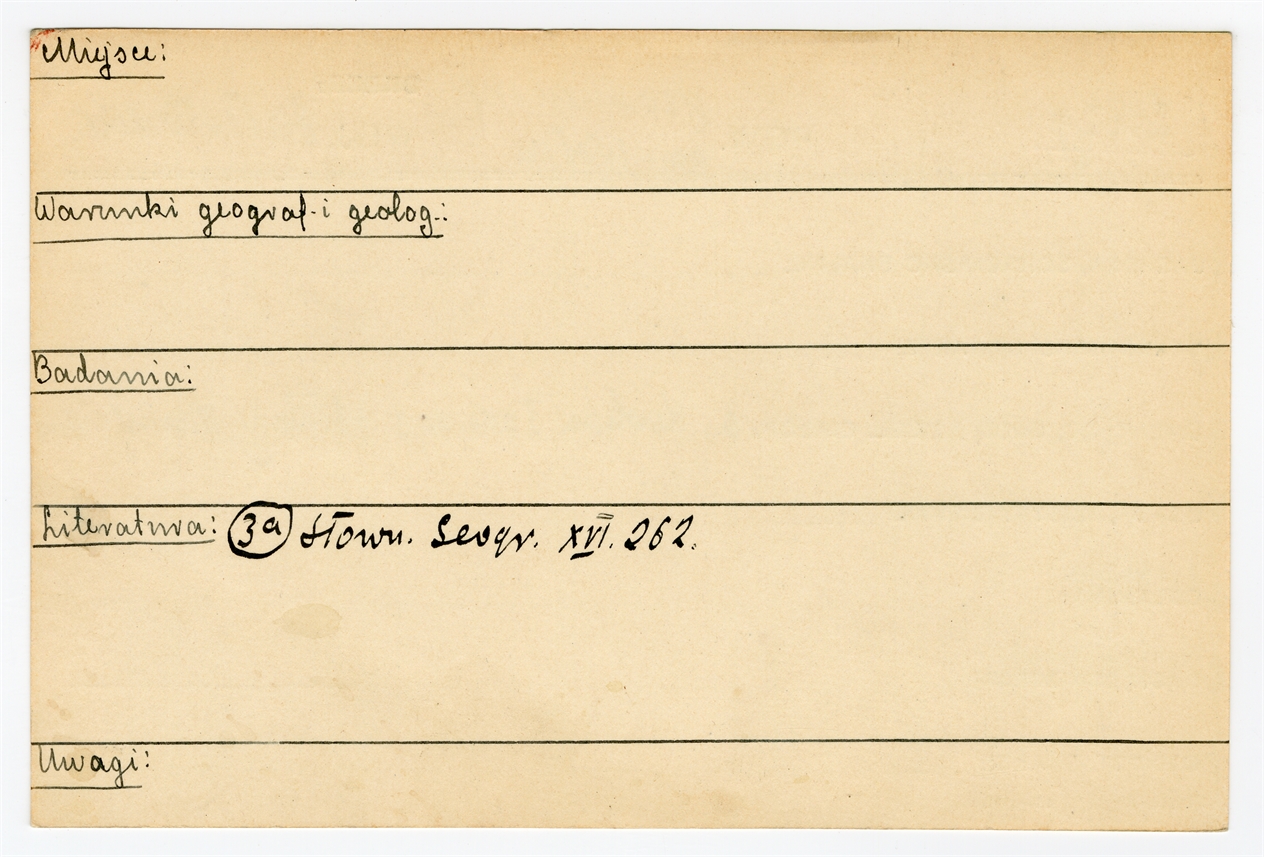 Miejsce:
Warunki geograf. i geolog.:
Badania:
Literatura: 3a Słown. Geogr. XVI. 262.
Uwagi: